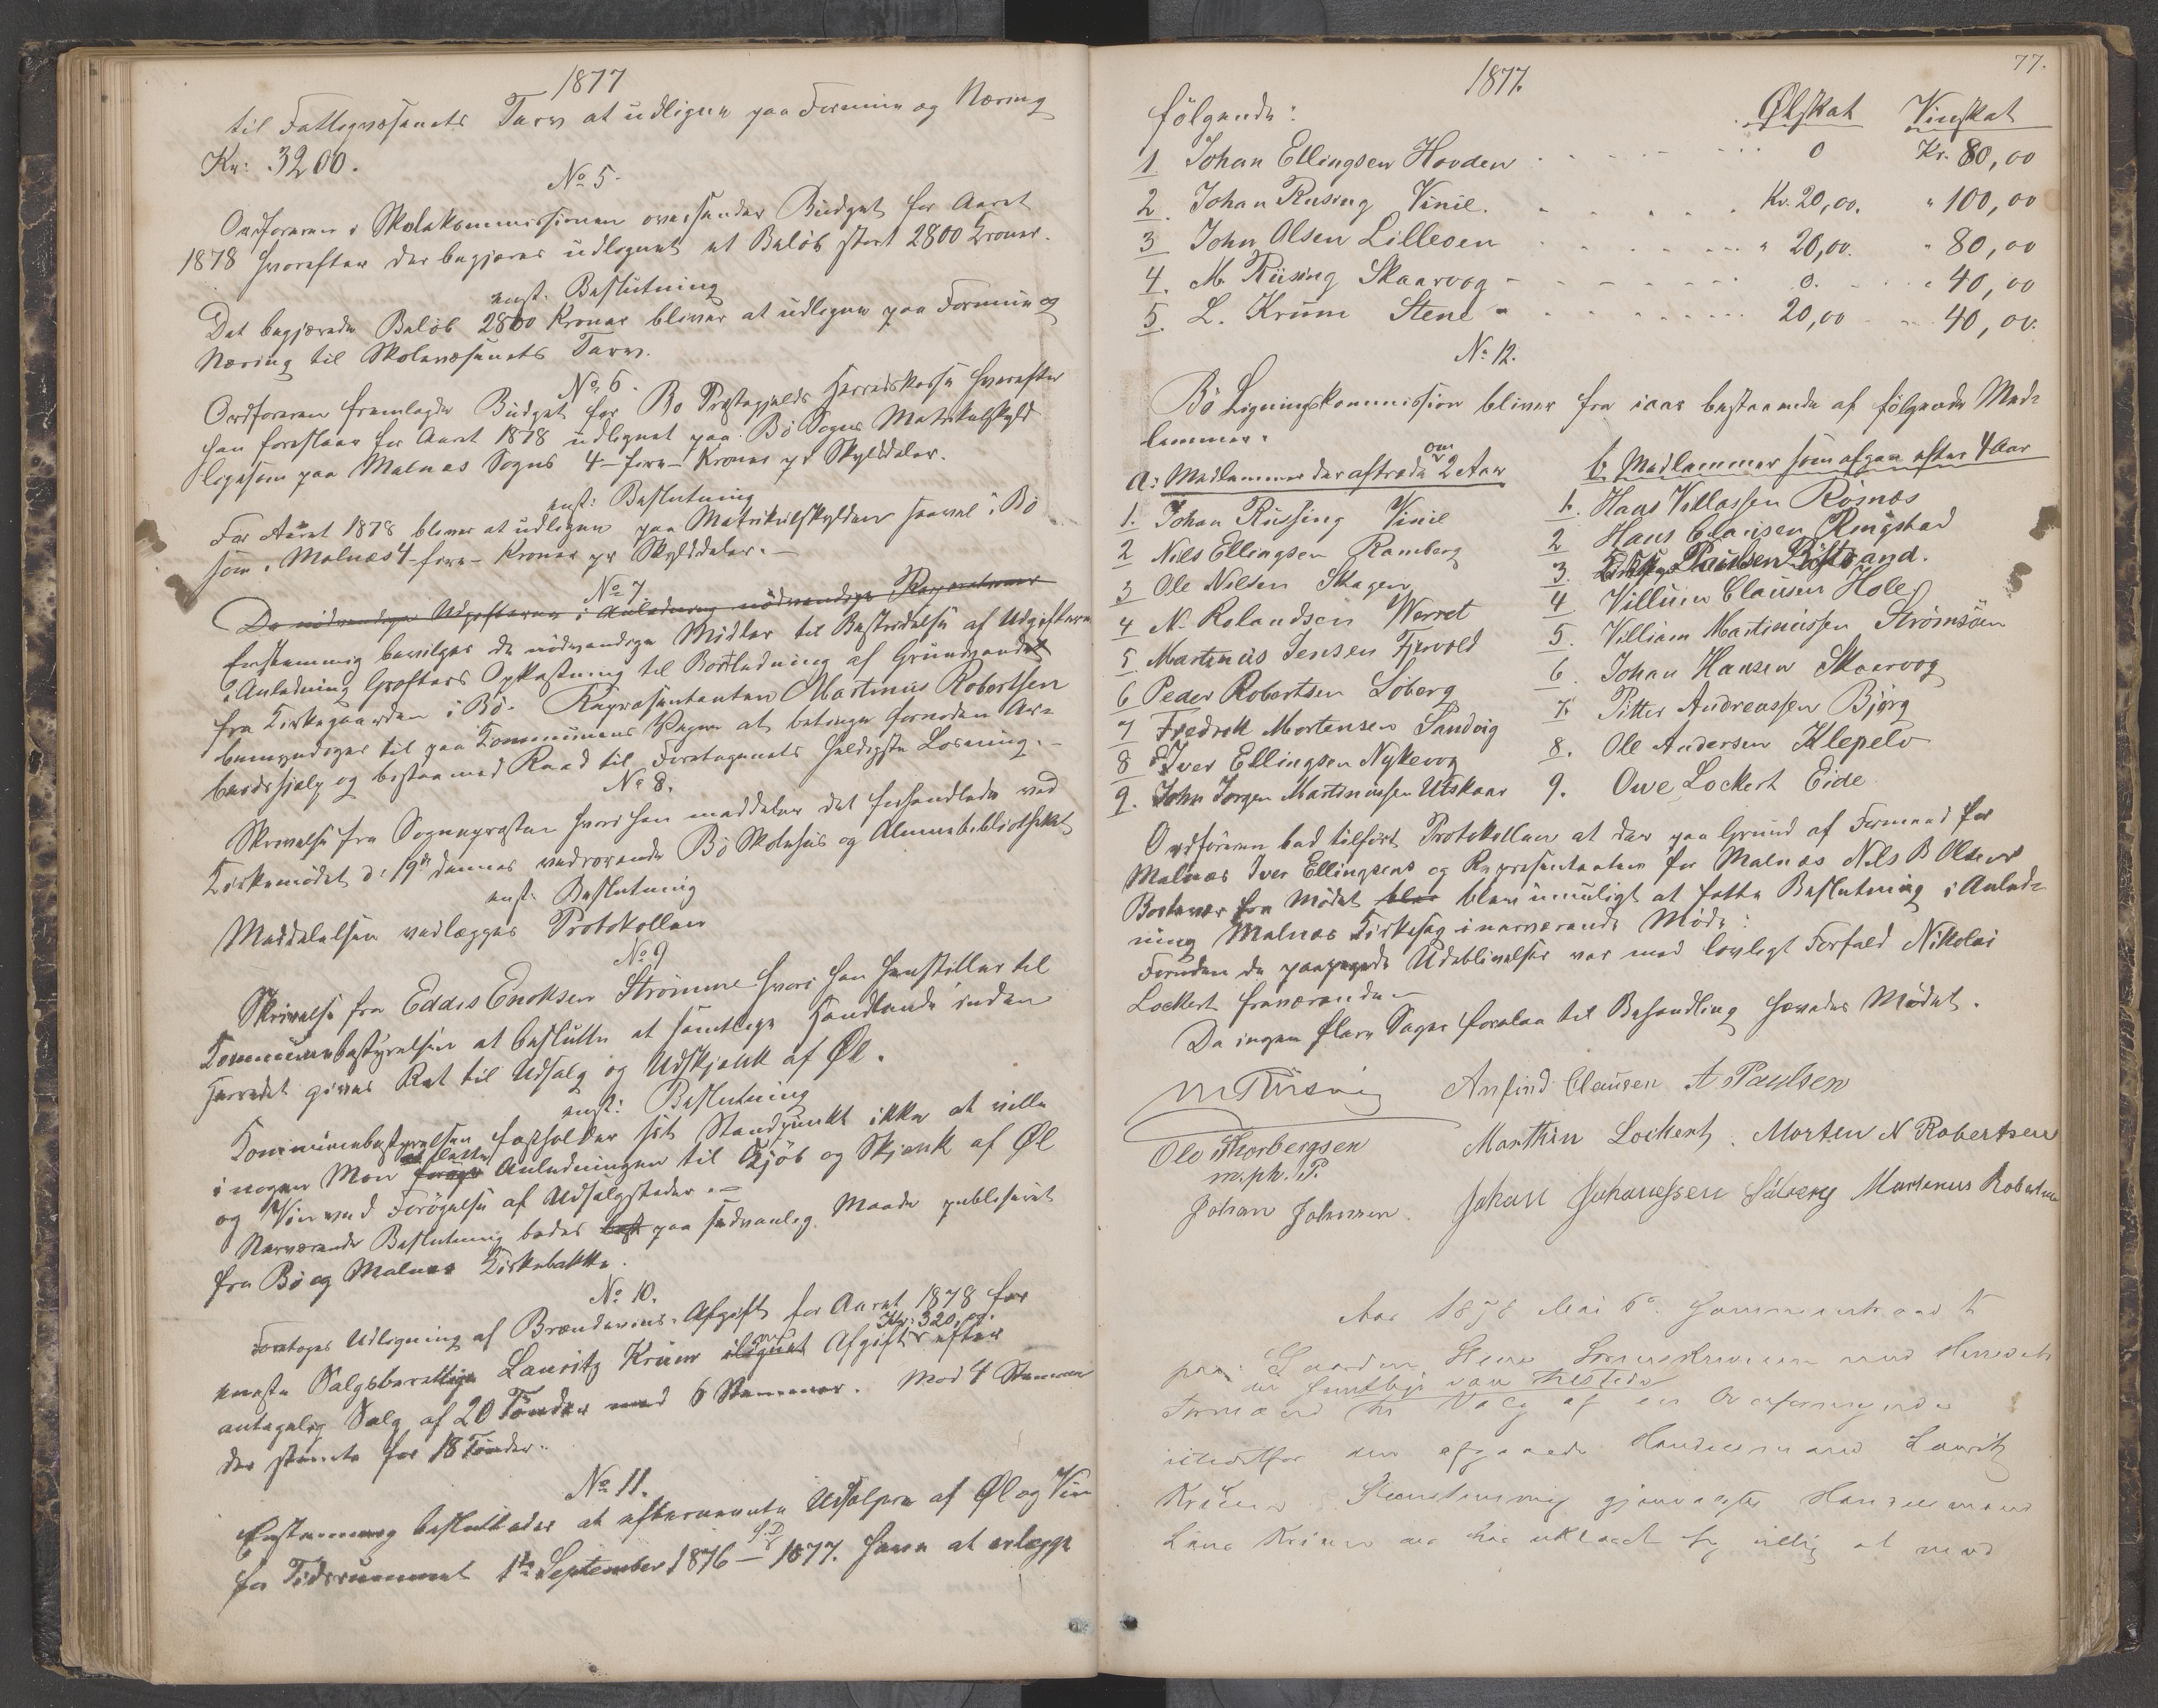 1877
til Fattigvæsenets Tarv at udligne paa Formue og Næring
Kr: 3200.
No 5.
Ordføreren i Skolekommissionen oversender Budget for Aaret
1878 hvorefter der begjæres udlignet et Beløb stort 2800 Kroner.
enst. Beslutning
Det begjærede Beløb 2800 Kroner bliver at udligne paa Formue og
Næring til Skolevæsenets Tarv.
No 6.
Ordføreren fremlagde Budget for Bø Præstegjelds Herredskasse hvorefter
han foreslaar for Aaret 1878 udlignet paa Bø Sogns Matrikulskyld
ligesom paa Malnes Sogns 4 - fire - Kroner pr Skylddaler.
enst: Beslutning
For Aaret 1878 bliver at udligne paa Matrikulskylden saavel i Bø
som i Malnæs 4 - fire - Kroner pr Skylddaler. -
No 7.
De nödvendige Udgifterne i Anledning nödvendige Reparationer
Enstemmig bevilges de nödvendige Midler til Bestridelse af Udgifterne
i Anledning Grøfters Opkastning til Bortledning af Grundvandet
fra Kirkegaarden i Bø. Repræsentanten Martinus Robertsen
bemyndiges til paa Kommunens Vegne at betinge fornøden Ar=
beidshjælp og bistaa med Raad til Foretagenets heldigste Løsning. -
No 8.
Skrivelse fra Sognepræsten hvori han meddeler det forhandlede ved
Kirkemødet d: 19de dennes vedrørende Bø Skolehus og Almuebibliothekt
enst: Beslutning
Meddelelsen vedlægges Protokollen
No 9
Skrivelse fra Eddis Enoksen Strømme hvori han henstiller til
Kommunebestyrelsen at beslutte at samtlige Handlende inden
Herredet gives Ret til Udsalg og Udskjænk af Øl.
enst: Beslutning
Kommunebestyrelsen fastholder sit Standpunkt ikke at ville
i nogen Mon Anledningen til Kjöb og Skjænk af Øl
og Vin ved Forøgelse af Udsalgsteder. -
Nærværende Beslutning bedes paa sedvanlig Maade publiseret
fra Bø og Malnes Kirkebakke.
No 10.
Foretoges Udligning af Brændevins-Afgift for Aaret 1878 for
Kr: 320,00.
eneste Salgsberettige Lauritz Krüm Afgift efter
antagelig Salg af 20 Tönder med 6 Stemmer. Mod 4 Stemmer
der stemte for 18 Tönder.
No 11.
Enstemmig besluttedes at efternevnte Udsalgere af Øl og Vin
for Tidsrummet 1ste September 1876 - S.D. 1877. have at erlægge
77.
1877.
fölgende: Ølskat Vinskat
1 Johan Ellingsen Hovden 0 Kr. 80,00
2. Johan Rusing Vinie. Kr. 20,00. " 100,00
3 John Olsen Lilleoen " 20,00. " 80,00
4. M. Rüsing Skaarvog - 0. " 40,00
5. L. Krüm Stene 20,00 40,00.
No 12.
Bø Ligningskommission bliver fra iaar bestaaende af fölgende Med=
lemmer.
a: Medlemmer der aftræde om 2 Aar
1. Johan Rüssing Vinie
2 Nils Ellingsen Ramberg
3 Ole Nilsen Skagen
4 N. Rolandsen Werret
5 Martinus Jensen Fjervold
6 Peder Robertsen Løberg
7 Fredrik Mortensen Sandvig
8 Iver Ellingsen Nykevog
9. John Jørgen Martinussen Utskaar
b. Medlemmer som afgaa efter 4 Aar
1. Haas Villassen Røsnes
2 Hans Clausen Ringstad
3. Paulsen
4 Villum Clausen Hole
5. Villiam Martinussen Strømsöen
6. Johan Hansen Skaarvog
7. Pitter Andreassen Bjørg
8. Ole Andersen Klepelv
9. Owe Lockert Eide
Ordföreren bad tilført Protokollen at der paa Grund af Formand for
Malnæs Iver Ellingsens og Representanten for Malnæs Nils B Olsens
Bortevær fra Mødet blev umuligt at fatte Beslutning i Anled=
ning Malnæs Kirkesag i nærværende Møde.
Foruden de paapegede Udeblivelser var med lovligt Forfald Nikolai
Lockert fraværende. -
Da ingen flere Sager forelaa til Behandling hævedes Mødet.
M Rüsing Anfind Clausen A Paulsen
Ole Thorbergsen Marthin Lockert. Morten N Robertsen
m. ph. P.
Johan Johansen. Johan Johanessen Søberg Martinus Robertsen
Aar 1878 Mai 6.
paa Gaarden Stene med Herredets
Formænd til Valg af en
istedetfor den afgaaede Handelsmand Lauritz
Krüm Eenstemmig gjenvalgtes Handelsmand